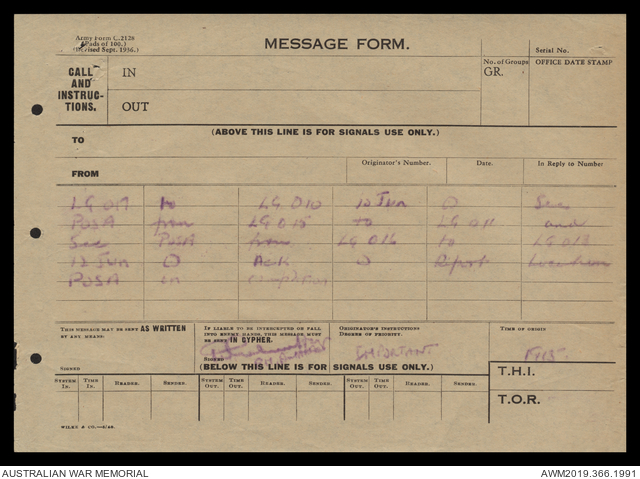 Army Form C.2128
(Pads of 100.)
(Revised Sept. 1936.)
MESSAGE FORM.
Serial No.
CALL AND INSTRUCTIONS.
IN
OUT
No. of Groups
GR.
OFFICE DATE STAMP
(ABOVE THIS LINE IS FOR SIGNALS USE ONLY.)
TO
FROM
Originator's Number.
Date.
In Reply to Number
to LG 010 12 Jun O See
PUSA from LG 015 to LG 011 and
See PUSA from LG 016 to LG 013
12 Jun O Ack O Report
PUSA in
THIS MESSAGE MAY BE SENT AS WRITTEN
BY ANY MEANS:
SIGNED
IF LIABLE TO BE INTERCEPTED OR FALL
INTO ENEMY HANDS, THIS MESSAGE MUST
BE SENT IN CYPHER.
SIGNED
ORIGINATOR'S INSTRUCTIONS
DEGREE OF PRIORITY.
IMPORTANT
TIME OF ORIGIN
(BELOW THIS LINE IS FOR SIGNALS USE ONLY.)
T.H.I.
T.O.R.
SYSTEM IN. TIME IN. READER. SENDER. SYSTEM OUT. TIME OUT. READER. SENDER. SYSTEM OUT. TIME OUT. READER. SENDER.
AUSTRALIAN WAR MEMORIAL
AWM2019.366.1991